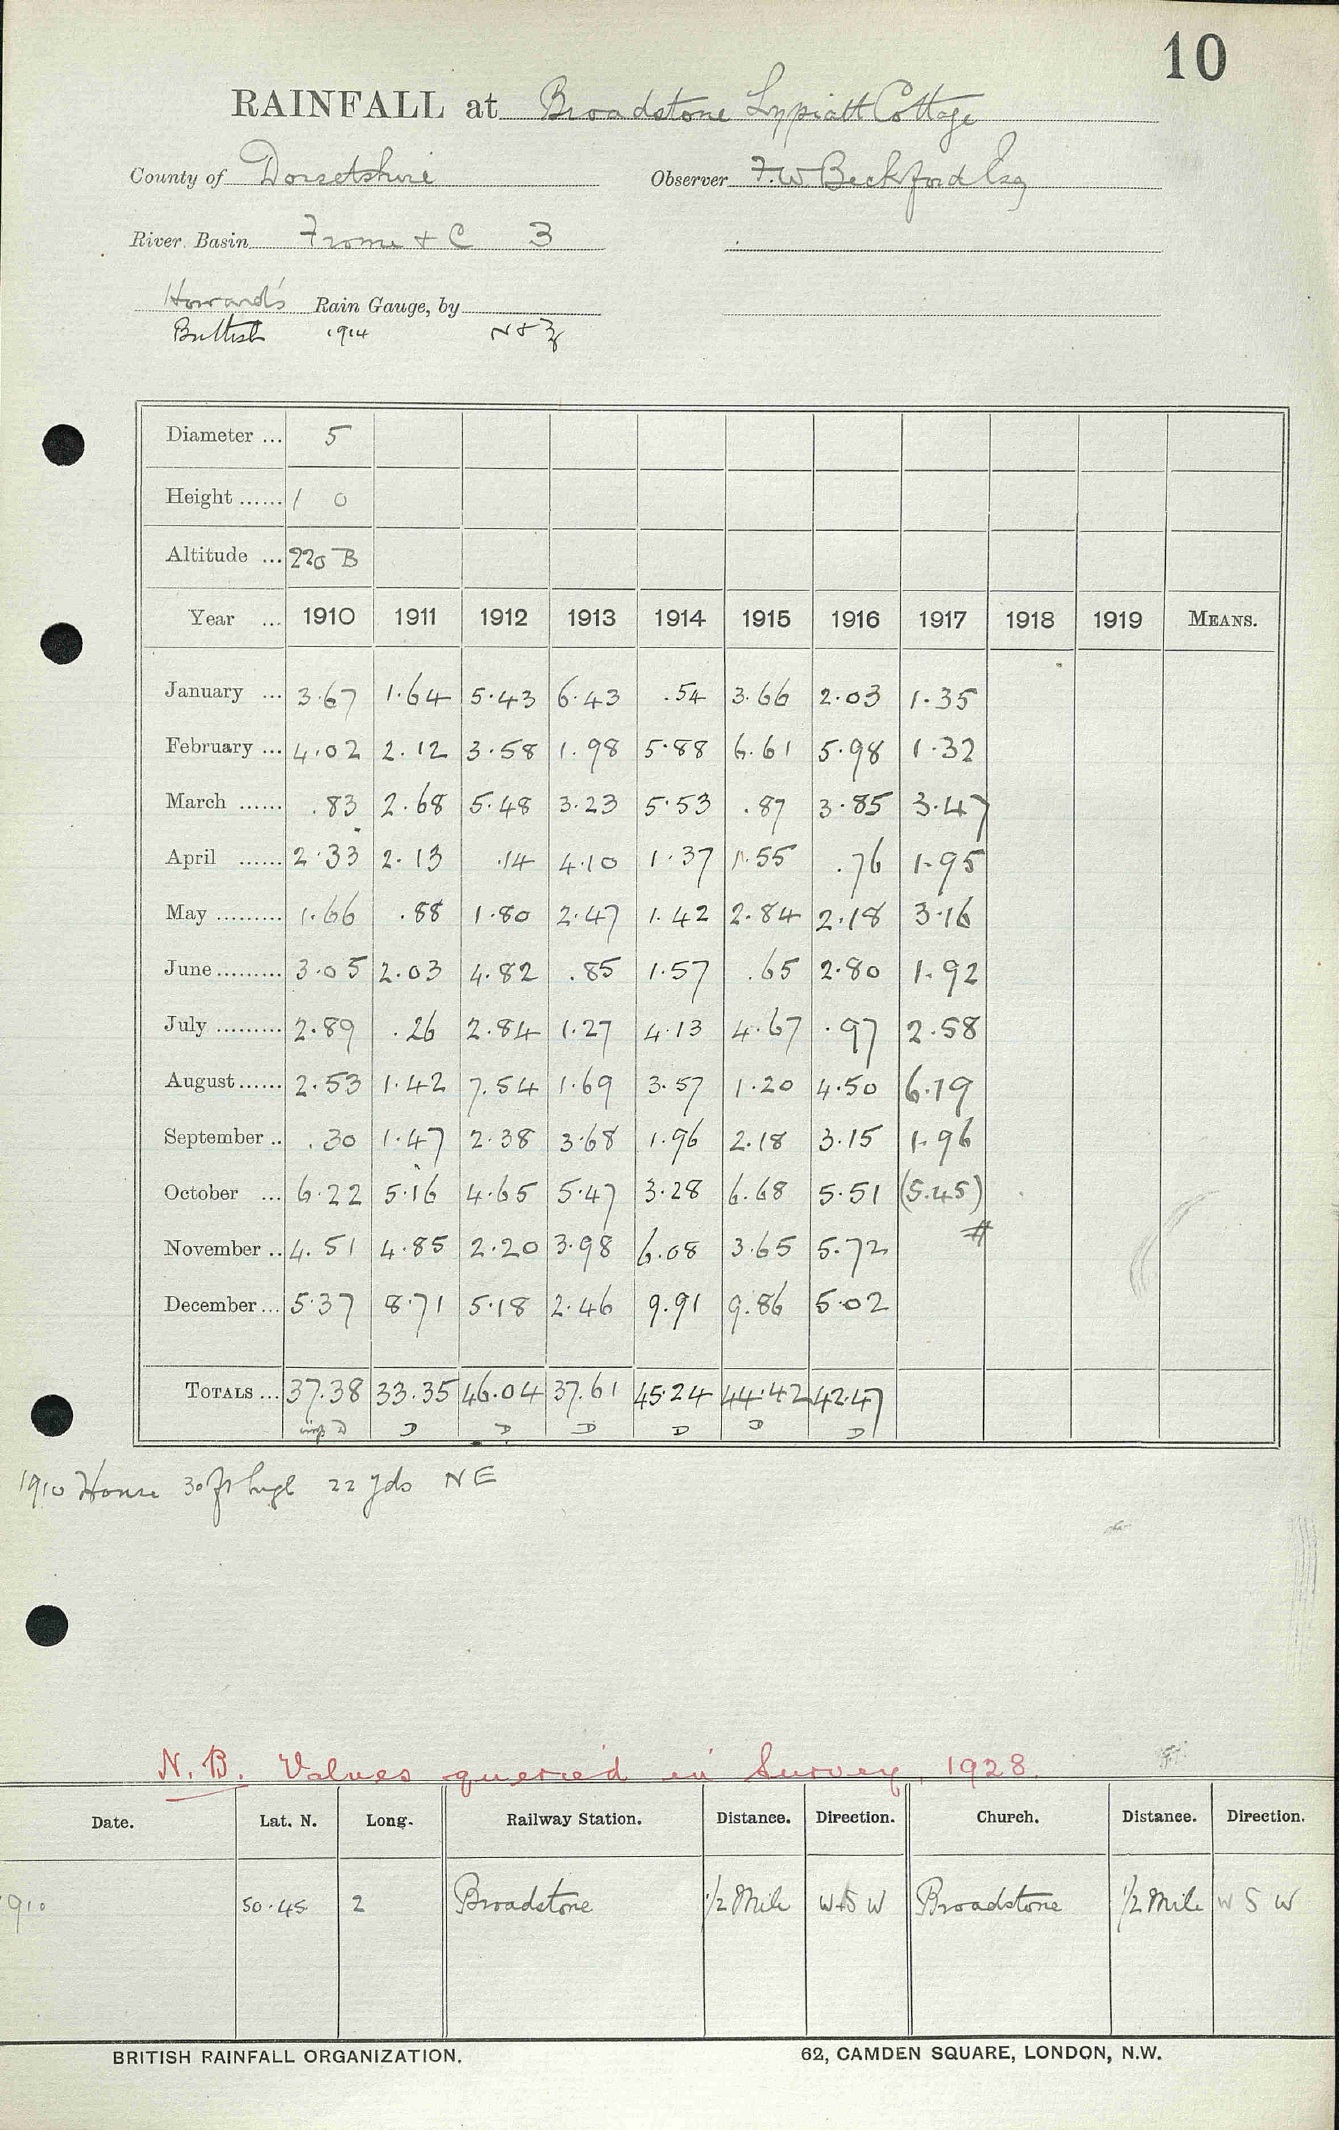 10
RAINFALL at Broadstone Lypiatt Cottage
County of Dorsetshire Observer F.W. Beckford Esq
River Basin Frome & C 3
Howard's Rain Gauge, by
1914 N & Z
Diameter ... 5
Height ...... 1 0
Altitude ... 220 B
Year ... 1910 1911 1912 1913 1914 1915 1916 1917 1918 1919 MEANS.
January ... 3.67 1.64 5.43 6.43 .54 3.66 2.03 1.35
February ... 4.02 2.12 3.58 1.98 5.88 6.61 5.98 1.32
March ...... .83 2.68 5.48 3.23 5.53 .87 3.85 3.47
April ...... 2.33 2.13 .14 4.10 1.37 1.55 .76 1.95
May ......... 1.66 .88 1.80 2.47 1.42 2.84 2.18 3.16
June ......... 3.05 2.03 4.82 .85 1.57 .65 2.80 1.92
July ......... 2.89 .26 2.84 1.27 4.13 4.67 .97 2.58
August ...... 2.53 1.42 7.54 1.69 3.57 1.20 4.50 6.19
September .. .30 1.47 2.38 3.68 1.96 2.18 3.15 1.96
October ... 6.22 5.16 4.65 5.47 3.28 6.68 5.51 (5.45)
November .. 4.51 4.85 2.20 3.98 6.08 3.65 5.72 #
December ... 5.37 8.71 5.18 2.46 9.91 9.86 5.02
TOTALS ... 37.38 33.35 46.04 37.61 45.24 44.42 42.47
D D D D D D D
1910 House 30 ft high 22 yds NE
N.B. Values queried in Survey, 1928.
Date. Lat. N. Long. Railway Station. Distance. Direction. Church. Distance. Direction.
910 50.45 2 Broadstone 1/2 Mile W S W Broadstone 1/2 Mile W S W
BRITISH RAINFALL ORGANIZATION. 62, CAMDEN SQUARE, LONDON, N.W.